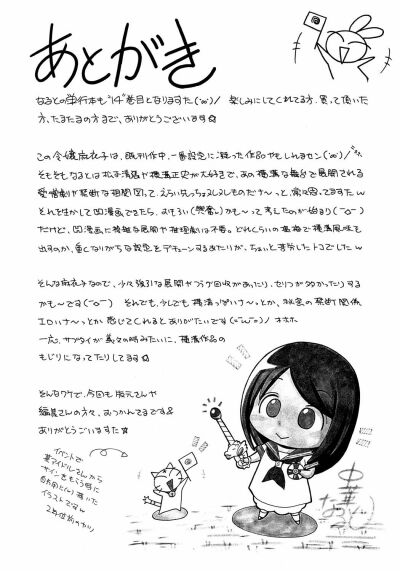 あとがき
なるとの単行本も"14"巻目となりますた(´ω`)ノ 楽しみにしてくれてる方、買って頂いた
方、たまたまの方まで、ありがとうございます☆
この令嬢麻衣子は、既刊作中、一番設定に凝った作品かもしれませン(´ω`)ノ
そもそもなるとは松子清店や横溝正史が大好きで、あの横溝な舞台で展開される
愛憎劇や禁断な相関図って、えらいちっちょえしえものだナ〜っと、常々思ってますたw
それを生かして凹漫画できたら、おもろい(興奮)かも〜って考えたのが始まり(⌒▽⌒)
だけど、凹漫画に複雑な展開や推理劇は不要。どれくらいの塩梅で横溝風味を
出すのか、重くなりがちな設定をデチューンするあたりが、ちょいと苦労したトコでしたw
そんな麻衣子なので、少々強引な展開やフラグ回収があったり、セリフが多かったりする
かも〜です(⌒▽⌒) それでも、少しでも横溝っぽいナ〜っとか、秘密の禁断関係
エロいナ〜っとか 感じてくれるとありがたいです(=´ω`=)ノ オホホ
一応、サブタイが前々の時みたいに、横溝作品の
もじりになってたりしてます☆
そんなワケで、今回も版元さんや
編集さんの方々、おつかんさまです&
ありがとうございますた☆
イベントで
某アイドルさんから
サインをもらう時に
描いた
イラストですw
2年位前のカリ
中華なると